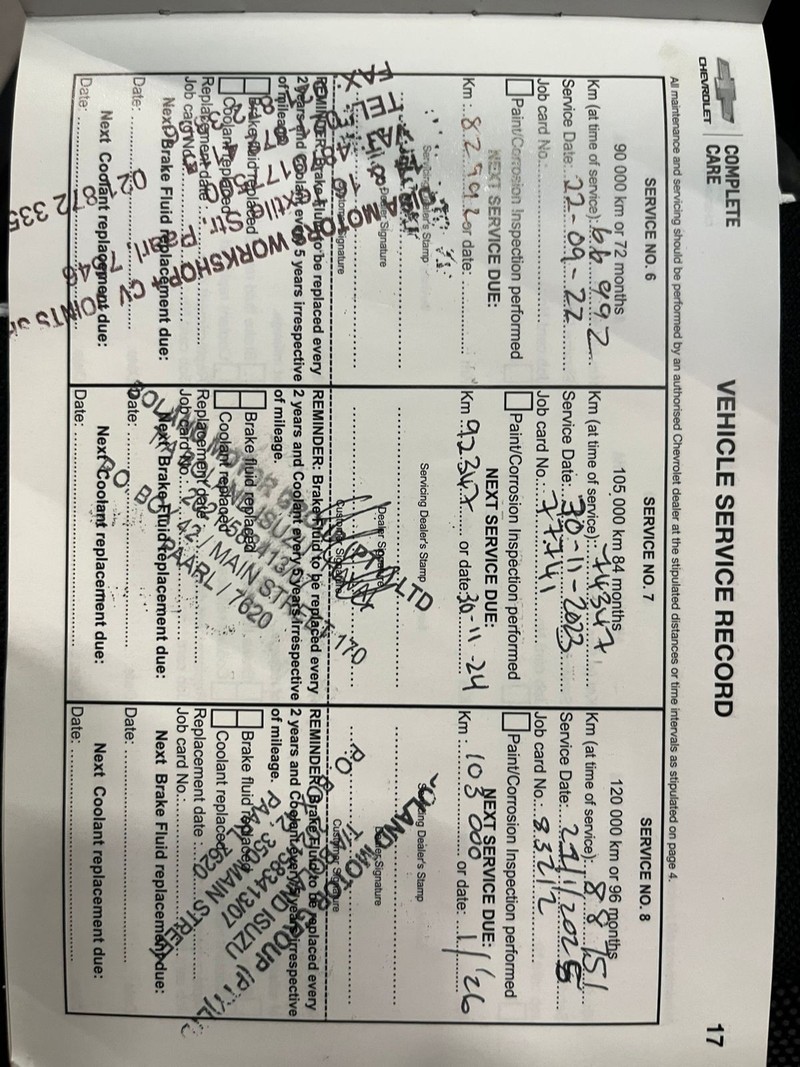 CHEVROLET
COMPLETE
CARE
VEHICLE SERVICE RECORD
17
All maintenance and servicing should be performed by an authorised Chevrolet dealer at the stipulated distances or time intervals as stipulated on page 4.
SERVICE NO. 6
90 000 km or 72 months
Km (at time of service): 66 992
Service Date: 22-09-22
Job card No.:
Paint/Corrosion Inspection performed
NEXT SERVICE DUE:
Km: 82992 or date:
Servicing Dealer's Stamp
Dealer Signature
Customer Signature
REMINDER: Brake Fluid to be replaced every
2 years and Coolant every 5 years irrespective
of mileage.
Brake fluid replaced
Coolant replaced
Replacement date
Job card No.:
Next Brake Fluid replacement due:
Date:
Next Coolant replacement due:
Date:
MOTOR WORKSHOP
CV JOINTS
72 335
SERVICE NO. 7
105 000 km 84 months
Km (at time of service): 74347
Service Date: 30-11-2023
Job card No.: 77741
Paint/Corrosion Inspection performed
NEXT SERVICE DUE:
Km 92347 or date: 30-11-24
Servicing Dealer's Stamp
Dealer Signature
Customer Signature
REMINDER: Brake Fluid to be replaced every
2 years and Coolant every 5 years irrespective
of mileage.
Brake fluid replaced
Coolant replaced
Replacement date
Job card No.:
Next Brake Fluid replacement due:
Date:
Next Coolant replacement due:
Date:
(PTY) LTD
ISUZU
PO BOX 42 / MAIN STREET 170
PAARL / 7620
SERVICE NO. 8
120 000 km or 96 months
Km (at time of service): 88 151
Service Date: 27/1/2025
Job card No.: 83212
Paint/Corrosion Inspection performed
NEXT SERVICE DUE:
Km: 103 000 or date: 1/'26
Servicing Dealer's Stamp
Dealer Signature
Customer Signature
REMINDER: Brake Fluid to be replaced every
2 years and Coolant every 5 years irrespective
of mileage.
Brake fluid replaced
Coolant replaced
Replacement date
Job card No.:
Next Brake Fluid replacement due:
Date:
Next Coolant replacement due:
Date:
LAND MOTOR GROUP (PTY) L
ISUZU
MAIN STREET
7620